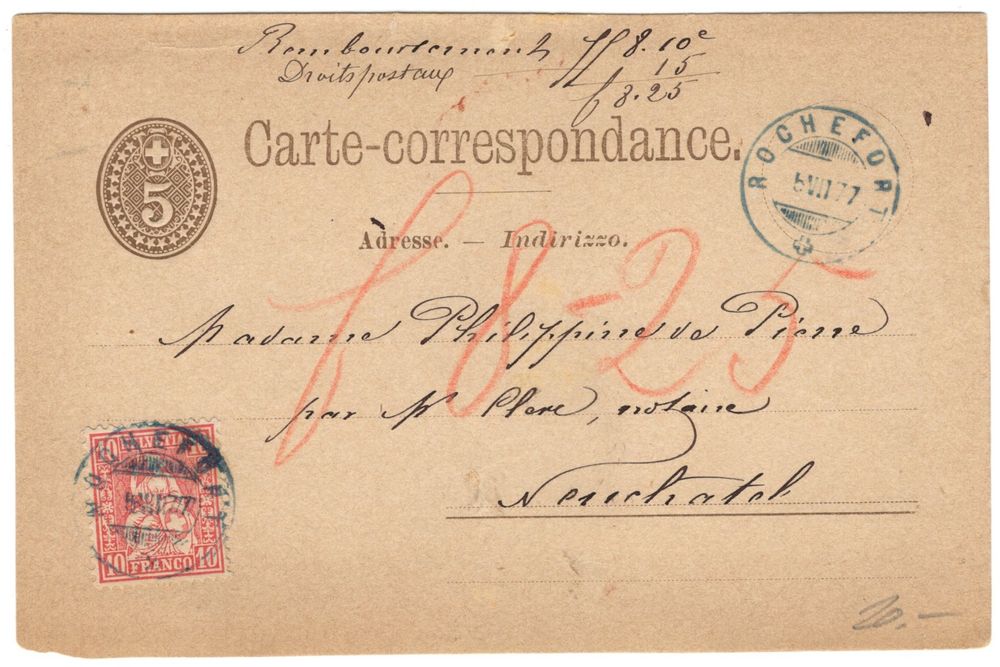 Remboursement ff 8.10c
Droits postaux 15
f 8.25
Carte-correspondance.
5
ROCHEFORT
5 VII 77
Adresse. — Indirizzo.
f 8-25
Madame Philippine de Pierre
par Mr Clerc, notaire
Neuchatel
10 HELVETIA 10
ROCHEFORT
5 VII 77
10 FRANCO 10
20.-